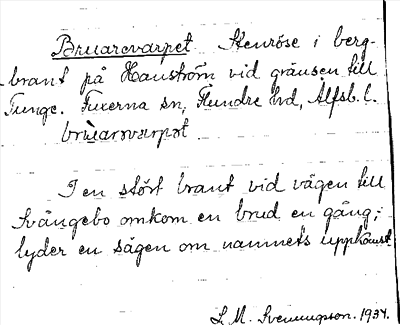 Bruarevarpet Stenröse i berg-
brant på Hanström vid gränsen till
Tunge. Fuxerna sn, Flundre hd, Älfsb. l.
bruarevarpet.
I en stört brant vid vägen till
Svängebo omkom en brud en gång;
lyder en sägen om namnets uppkomst
L. M. Svenungsson. 1934.